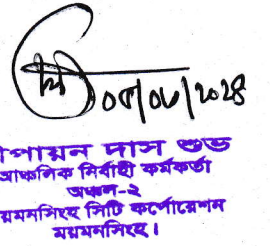 ০৫/০৬/২০২৪
পায়ন দাস শুভ
আঞ্চলিক নির্বাহী কর্মকর্তা
অঞ্চল-২
য়মনসিংহ সিটি কর্পোরেশন
ময়মনসিংহ।